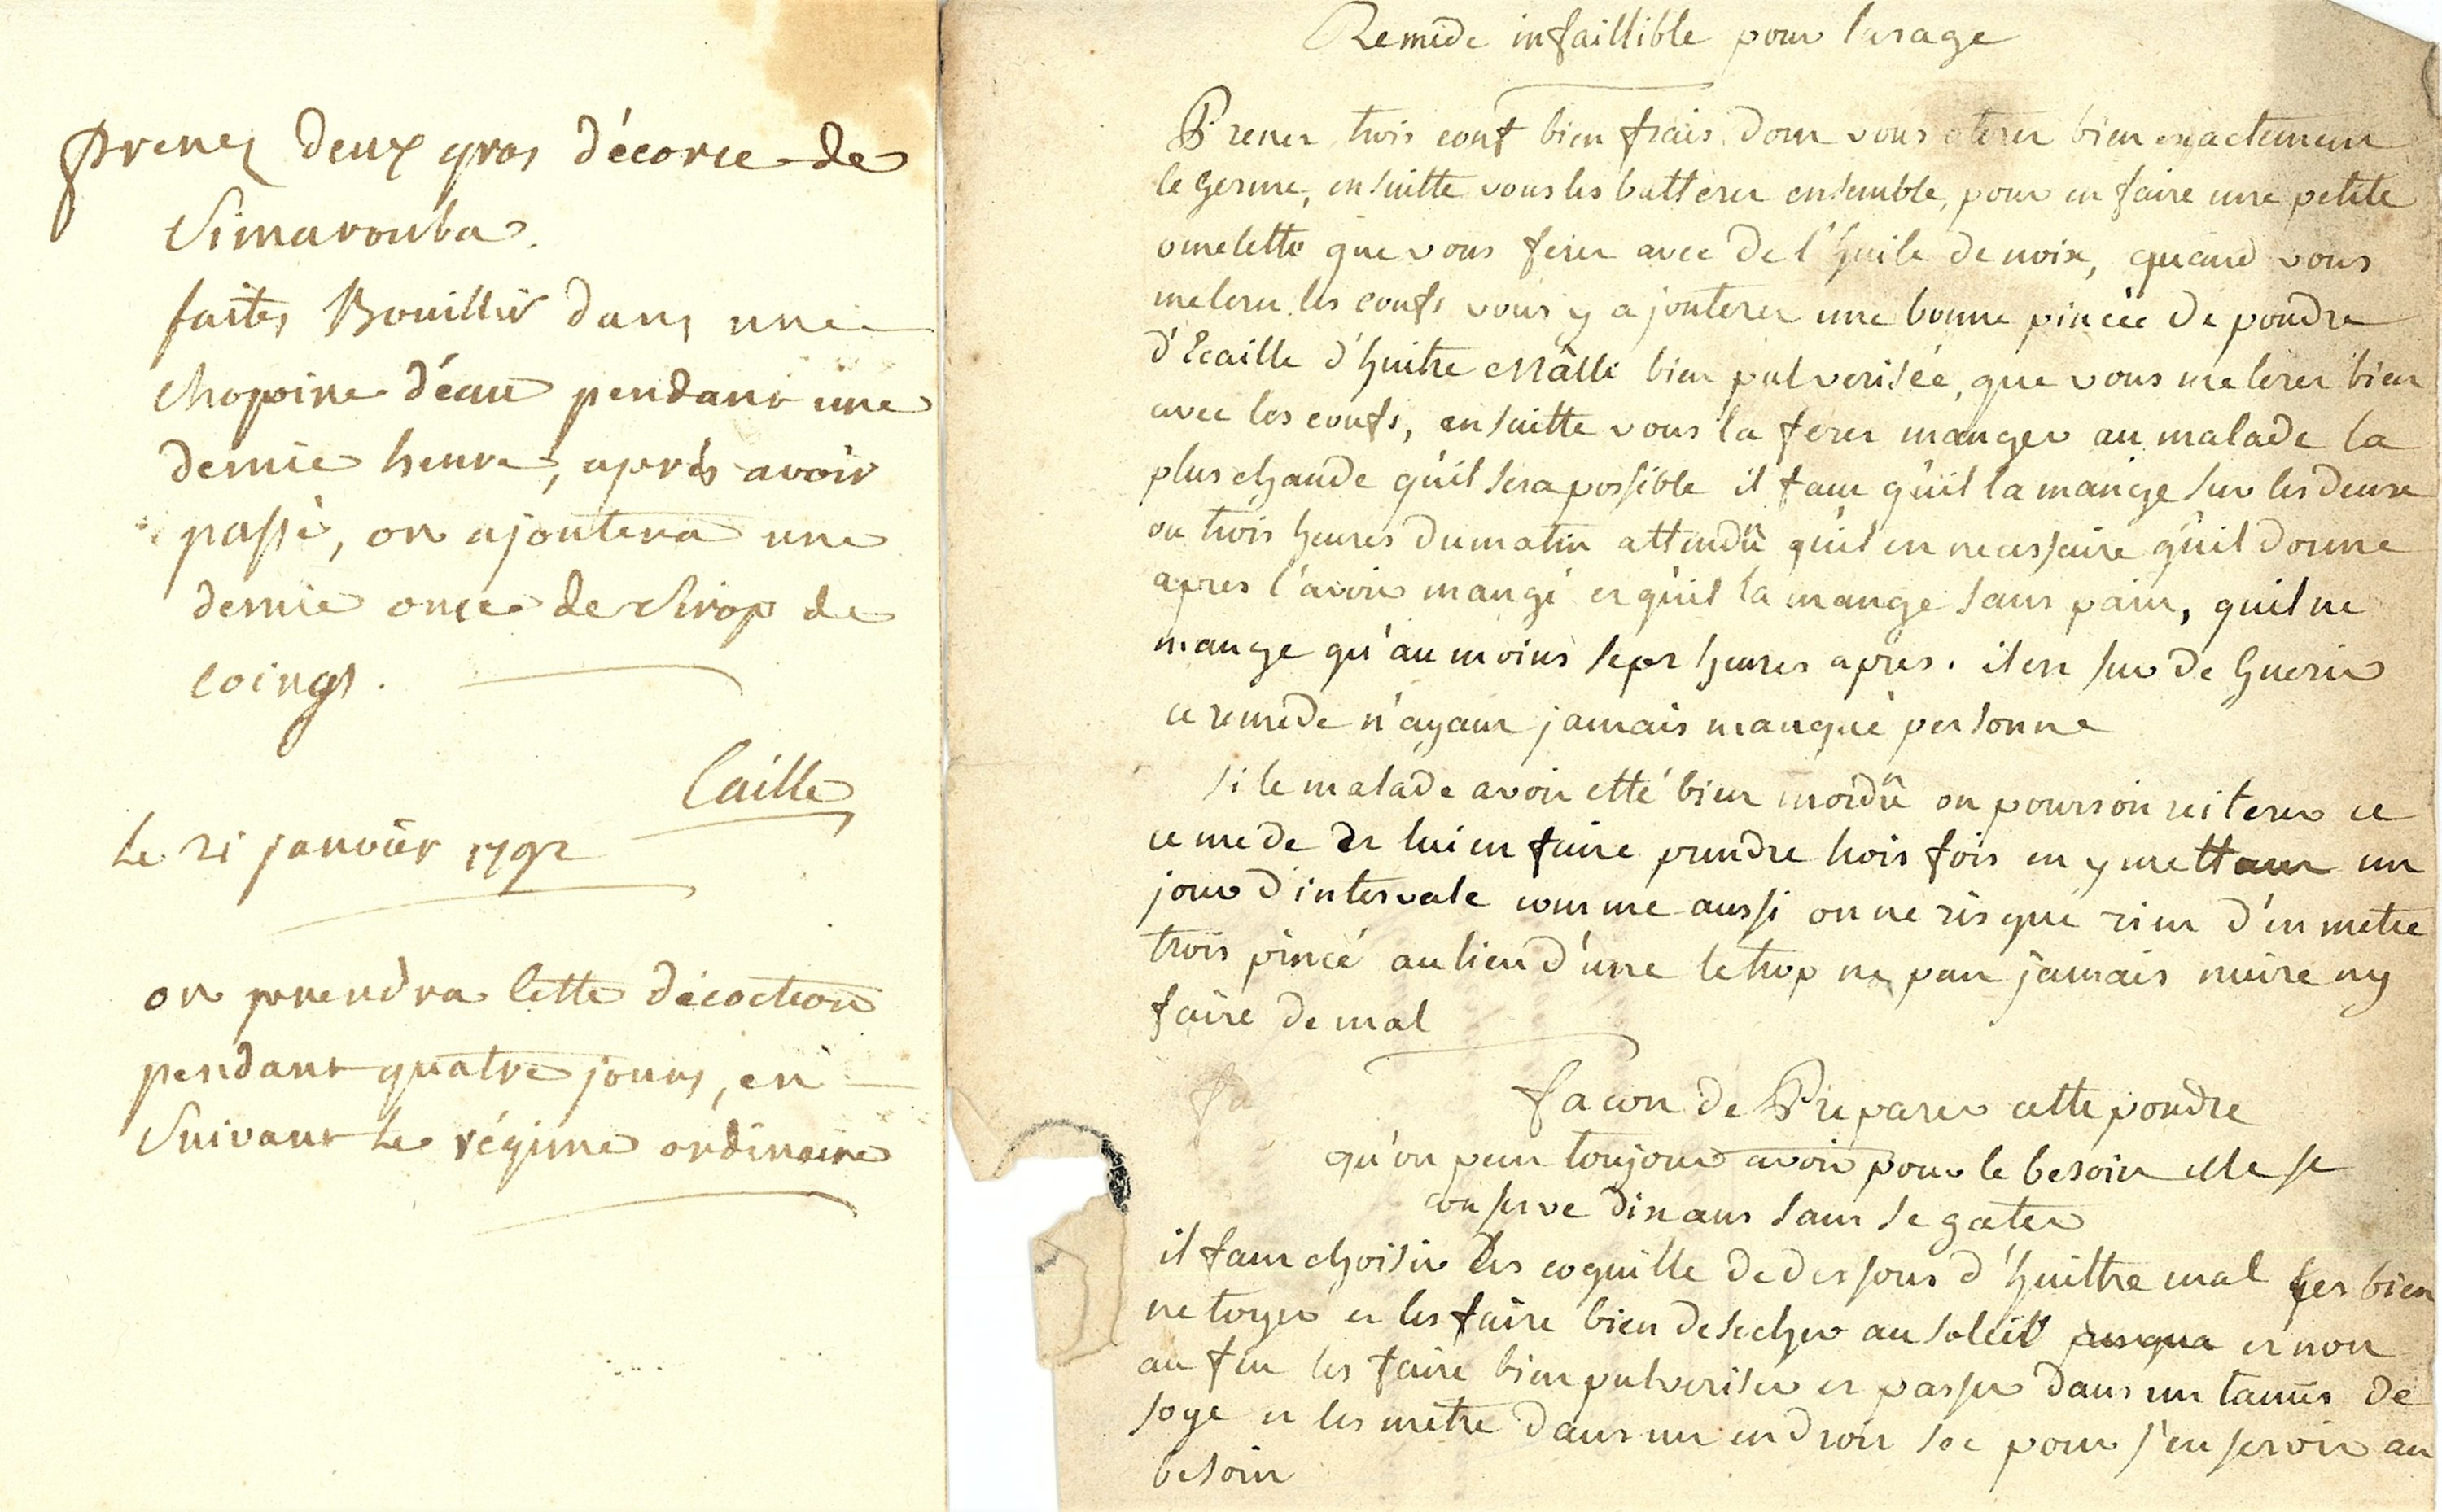 prenez deux gros d'écorce de
Simarouba.
faites Bouillir dans une
chopine d'éau pendant une
demie heure, aprés avoir
passé, on ajoutera une
demie once de Sirop de
coings.
Caille
Le 21 janvier 1792
on prendra Cette décoction
pendant quatre jours, en
Suivant Le régime ordinaire
Remede infaillible pour la rage
Prenez trois oeuf bien frais dont vous oterez bien exactement
le Germe, ensuitte vous les batterez ensemble, pour en faire une petite
omelette que vous ferez avec de l'huile de noix, quand vous
melerez les oeufs vous y ajouterez une bonne pincée de poudre
d'Ecaille d'huitre Mâlle bien pulverisée, que vous melerez bien
avec les oeufs, ensuitte vous la ferez manger au malade la
plus chaude qu'il sera possible il faut qu'il la mange sur les deux
ou trois heures du matin attendû qu'il est necessaire qu'il dorme
apres l'avoir mangé et qu'il la mange sans pain, qu'il ne
mange qu'au moins sept heures apres. il est sur de Guerir
ce remede n'ayant jamais manqué personne
si le malade avoit etté bien mordû on pourroit reiterer ce
remede et lui en faire prendre trois fois en y mettant un
jour d'intervale comme aussi on ne risque rien d'en metre
trois pincé au lieu d'une le trop ne peut jamais nuire ny
faire de mal
fa
facon de Preparer cette poudre
qu'on peut toujour avoir pour le besoin elle se
conserve dix ans sans se gater
il faut choisir les coquille de dessous d'huittre mal les bien
netoyer et les faire bien desecher au soleil jusqua et non
au feu les faire bien pulveriser et passer dans un tamis de
soye et les metre dans un endroit sec pour s'en servir au
besoin